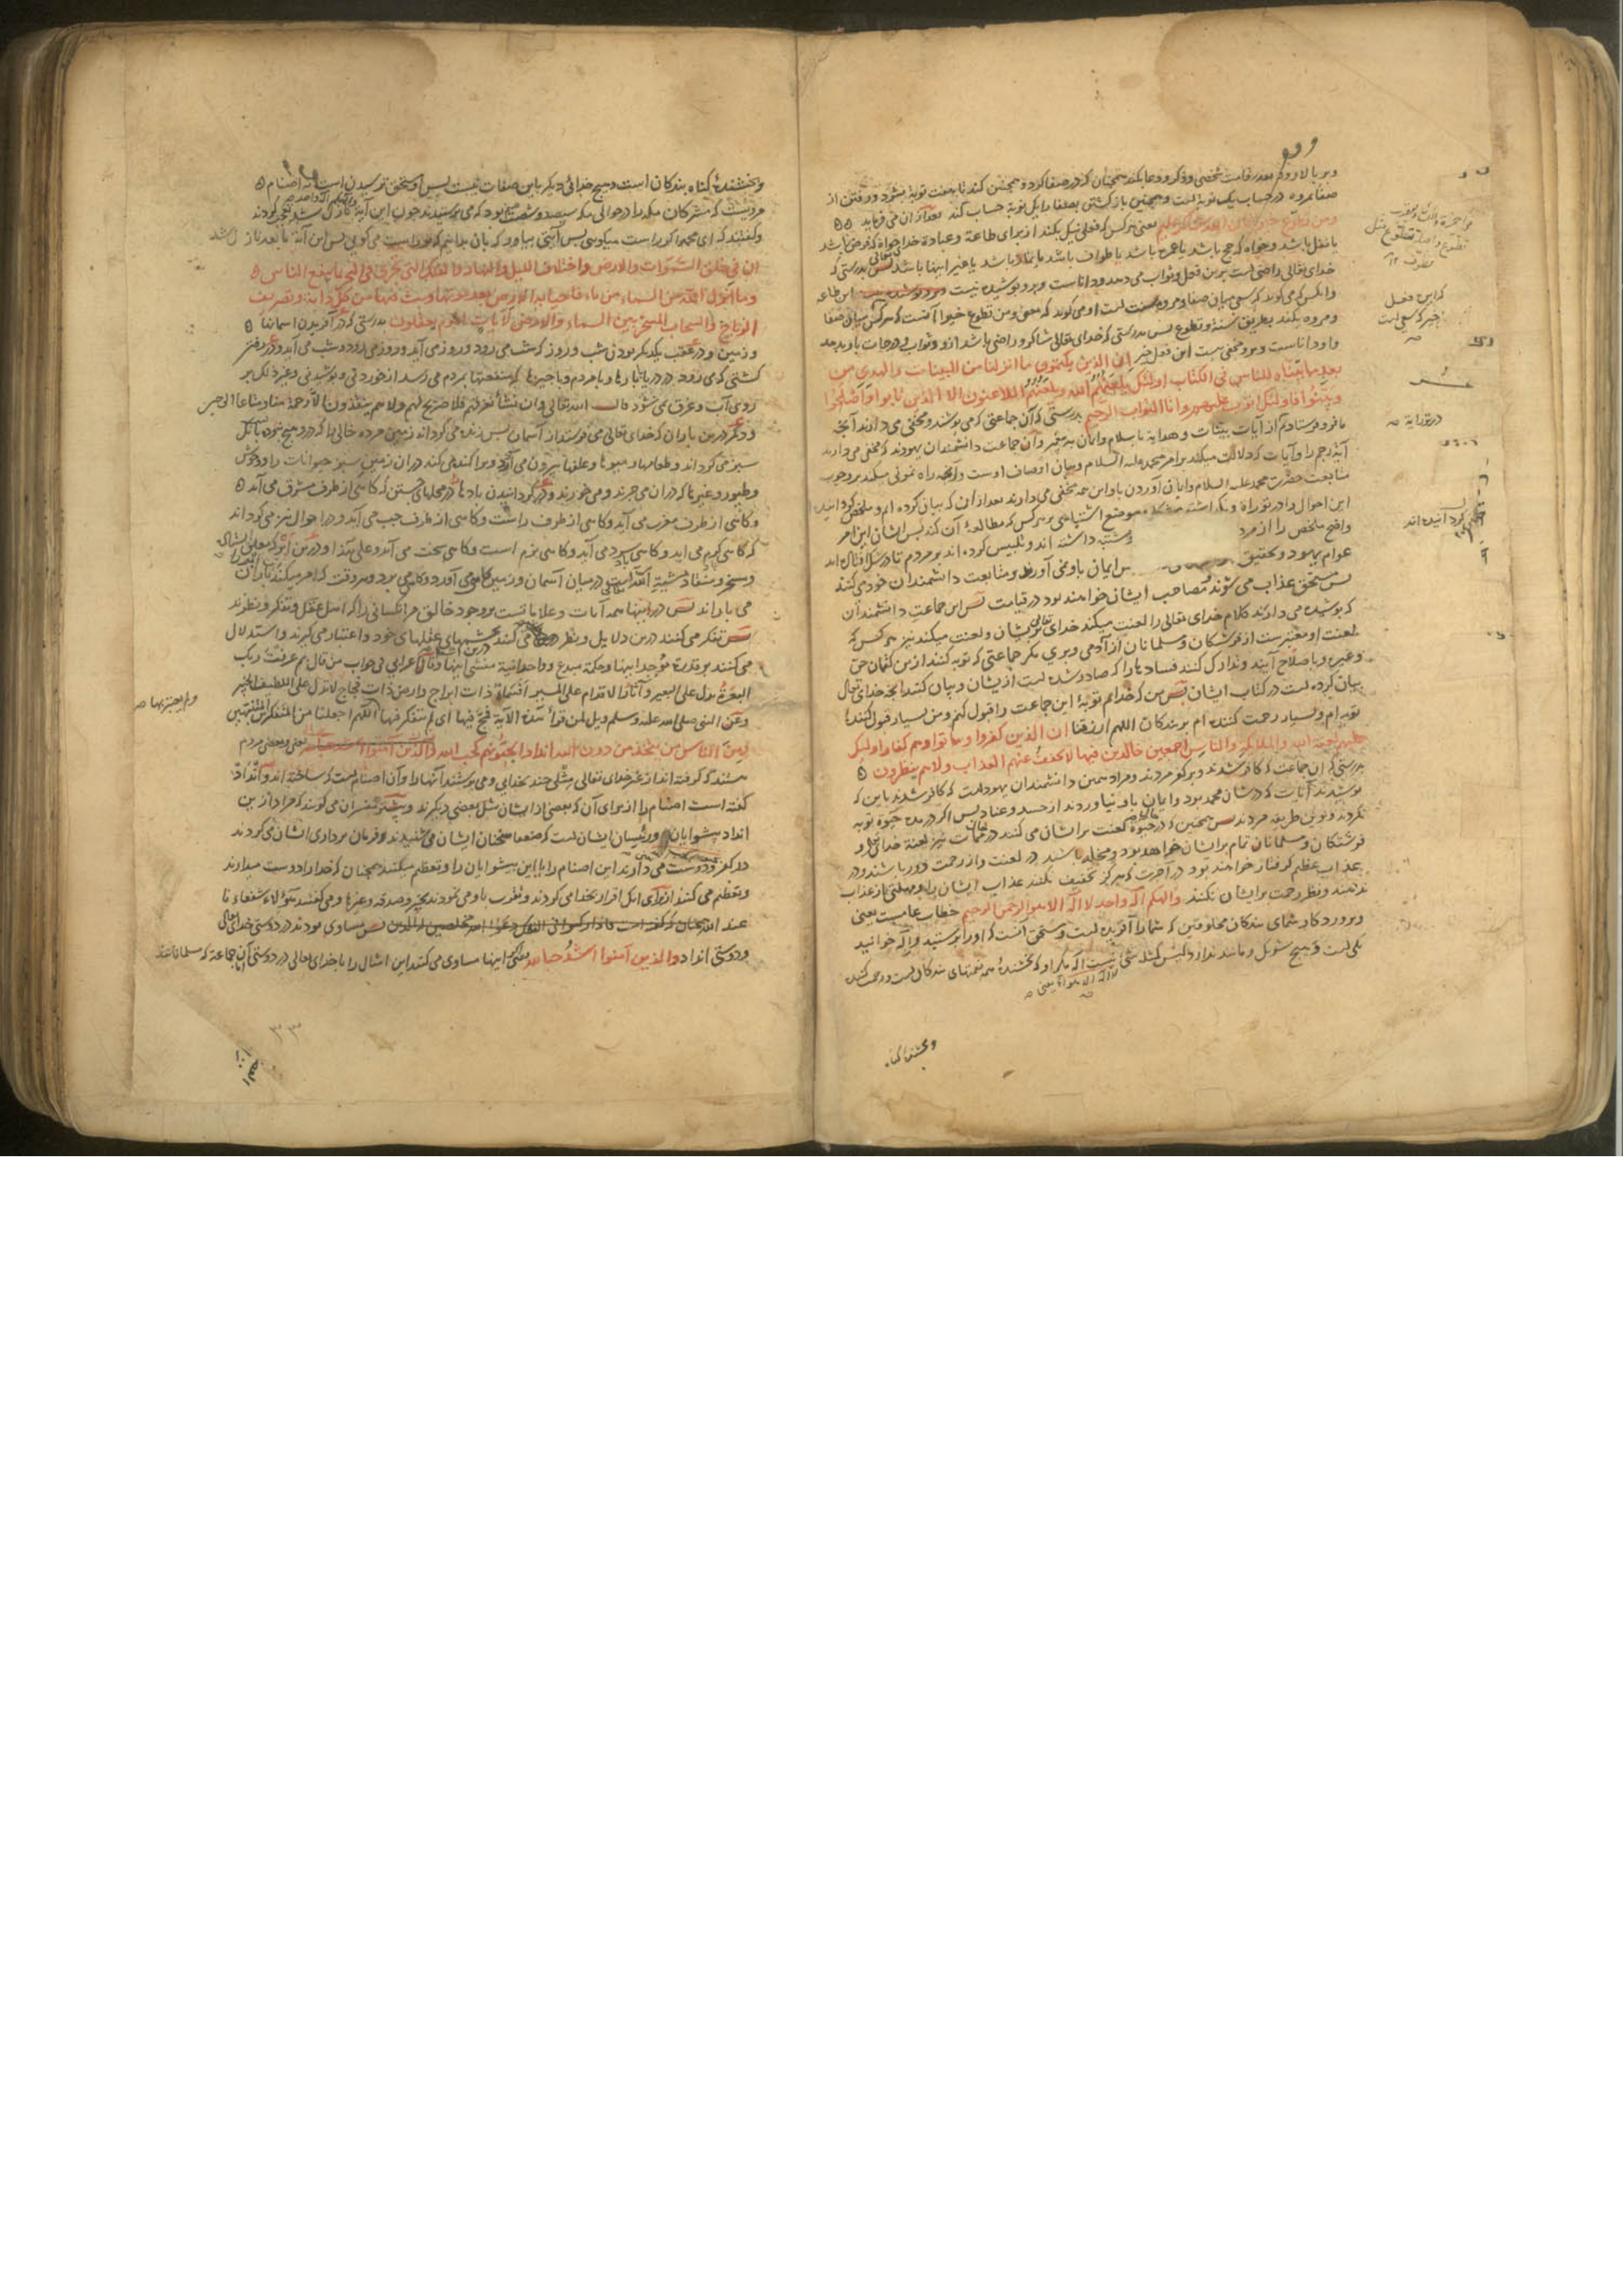 وبر بالا رود بقدر قامت شخصی وذکر ودعا بکند همچنان که در صفا کرد وهمچنین کند تا هفت نوبه بشود ورفتن از
صفا بمروه در حساب یک نوبه است وهمچنین باز کشتن بصفا را یک نوبه حساب کند بعد از ان می فرماید
ومن تطوع خیرا فان الله شاکر علیم یعنی هر کس که فعلی نیک بکند از برای طاعة وعبادة خدا خواه که فرض باشد
یا نفل باشد وخواه که حج باشد یا عمره باشد یا طواف باشد یا نماز باشد یا غیر اینها باشد پس بدرستی که
خدای تعالی راضی است برین فعل وثواب می دهد ودانا است وبرو پوشیده نیست این طاعه
وانکس که می کوید که سعی میان صفا ومروه سنت است او می کوید که معنی ومن تطوع خیرا آنست که هر کس میان صفا
ومروه بکند بطریق سنة وتطوع پس بدرستی که خدای تعالی شاکر وراضی باشد ازو وثواب ودرجات باو بدهد
واو داناست وبرو مخفی نیست این فعل خیر ان الذین یکتمون ما انزلنا من البینات والهدی من
بعد ما بیناه للناس فی الکتاب اولئک یلعنهم الله ویلعنهم اللاعنون الا الذین تابوا واصلحوا
وبینوا فاولئک اتوب علیهم وانا التواب الرحیم بدرستی که آن جماعتی که می پوشند ومخفی می دارند آنچه
ما فرو فرستادیم از آیات بینات وهدایة باسلام وایمان به پیغمبر وآن جماعت دانشمندان یهودند که مخفی می دارند
آیة رجم را وآیات که دلالت میکند بر امر محمد علیه السلام وبیان اوصاف اوست وآنچه راه نمونی میکند بر وجوب
متابعت حضرت محمد علیه السلام وایمان آوردن باو این همه مخفی می دارند بعد از ان که بیان کرده ام وملخص کردانیده
این احوال را در توراة ونکذاشته موضع اشتباهی بر هر کس که مطالعۀ آن کند پس ایشان این امر
واضح ملخص را از مرد مشتبه داشته اند وتلبیس کرده اند بر مردم تا در شک افتاده اند
عوام یهود وتحقیق پس ایمان باو نمی آورند ومتابعت دانشمندان خود می کنند
پس مستحق عذاب می شوند ومصاحب ایشان خواهند بود در قیامت پس این جماعت دانشمندان
که پوشیده می دارند کلام خدای تعالی را لعنت میکند خدای تعالی بریشان ولعنت میکند نیز هر کس که
لعنت او معتبرست از فرشتکان ومسلمانان از آدمی وپری مکر جماعتی که توبه کنند ازین کتمان حق
وغیره وباصلاح آیند وتدارک کنند فساد ها را که صادر شده است از یشان وبیان کنند آنچه خدای تعالی
بیان کرده است در کتاب ایشان پس من که خدایم توبۀ این جماعت را قبول کنم ومن بسیار قبول کنندۀ
توبه ام وبسیار رحمت کننده ام بر بندکان اللهم ارزقنا ان الذین کفروا وماتوا وهم کفار اولئک
علیهم لعنة الله والملائکة والناس اجمعین خالدین فیها لا یخفف عنهم العذاب ولا هم ینظرون
بدرستی که ان جماعت که کافر شدند وبر کفر مردند ومراد همین دانشمندان یهودست که کافر شدند باین که
پوشیدند آیات که در شان محمد بود وایمان باو نیاوردند از حسد وعناد پس اکر در مدة حیوة توبه
نکردند وبرین طریقه مردند پس همچنین که در حیوة لعنت بر ایشان می کنند در ممات نیز لعنة خدای تعالی و
فرشتکان ومسلمانان تمام بر ایشان خواهد بود ومخلد باشند در لعنت واز رحمت دور باشند ودر
عذاب عظیم کرفتار خواهند بود در آخرت که هرکز تخفیف نکنند عذاب ایشان را ومهلتی از عذاب
ندهند ونظر رحمت بر ایشان نکنند والهکم اله واحد لا اله الا هو الرحمن الرحیم خطاب عامست یعنی
وپروردکار شمای بندکان مخلوقین که شما را آفریده است ومستحق آنست که او را پرستید واله خوانید
یکی است وهیچ شریک ومانند ندارد لیس کمثله شیء نیست اله مکر او که بخشندۀ همه نعمتهای بندکان است ورحمت کننده
لا اله الا هو یعنی
وبخشنده کناه
که این فعل
خیر که سعی است
در توراية
کردانیده اند
وبخشندۀ کناه بندکان است وهیچ خدائی دیکر باین صفات نیست پس او مستحق پرسیدن است نه اصنام
مرویست که مشرکان مکه را در حوالی مکه سیصد وشصت صنم بود که می پرستیدند چون این آیة نازل شد تعجب کردند
وکفتند که ای محمد اکر راست میکویی پس آیتی بیاور که بان بدانیم که تو راست می کویی پس این آیة ما بعد نازل شد
ان فی خلق السموات والارض واختلاف اللیل والنهار والفلک التی تجری فی البحر بما ینفع الناس
وما انزل الله من السماء من ماء فاحیا به الارض بعد موتها وبث فیها من کل دابة وتصریف
الریاح والسحاب المسخر بین السماء والارض لآیات لقوم یعقلون بدرستی که در آفریدن اسمانها
وزمین ودر عقب یکدیکر بودن شب وروز که شب می رود وروز می آید وروز می رود وشب می آید ودر رفتن
کشتی که می رود در دریا با بارها وبا مردم وبا چیزها که منفعتها بمردم می رسد از خوردنی وپوشیدنی وغیر ذلک بر
روی آب وغرق نمی شود قال الله تعالی وان نشأ نغرقهم فلا صریخ لهم ولا هم ینقذون الا رحمة منا ومتاعا الی حین
ودیکر درین باران که خدای تعالی می فرستد از آسمان پس زنده می کرداند زمین مرده خالی را که درو هیچ نبوده باشد
سبز می کرداند وطعامها ومیوها وعلفها بیرون می آرد وپراکنده می کند در ان زمین سبز حیوانات را ووحوش
وطیور وغیرها که در ان می چرند ومی خورند ودر کردانیدن بادها در محلهای جستن که کاهی از طرف مشرق می آید
وکاهی از طرف مغرب می آید وکاهی از طرف راست وکاهی از طرف چپ می آید ودر احوال نیز می کرداند
که کاهی کرم می اید وکاهی سرد می آید وکاهی نرم است وکاهی سخت می آید وعلی هذا ودرین ابر که معلق
ومسخر ومنقاد مشیة الله است در میان آسمان وزمین کاهی می آورد وکاهی می برد وهر وقت که امر میکند باران
می باراند پس در اینها همه آیات وعلاماتست بر وجود خالق مر انکسانی را که اهل عقل وتفکر ونظرند
پس تفکر می کنند درین دلایل ونظر می کنند بچشمهای عقلهای خود واعتبار می کیرند واستدلال
می کنند بر قدرت موجد اینها وحکمة مبدع ووحدانیة منشی اینها وقال اعرابی فی جواب من قال بم عرفت ربک
البعرة تدل علی البعیر وآثار الاقدام علی المسیر افسماء ذات ابراج وارض ذات فجاج لا تدل علی اللطیف الخبیر
وعن النبی صلی الله علیه وسلم ویل لمن قرأ هذه الآیة فمج فیها ای لم یتفکر فیها اللهم اجعلنا من المتفکرین
ومن الناس من یتخذ من دون الله اندادا یحبونهم کحب الله والذین آمنوا یعنی وبعضی مردم
هستند که کرفته اند از غیر خدای تعالی مثلی چند بخدایی ومی پرستند آنها را وآن اصنام است که ساخته اند
کفته است اصنام را از برای آن که بعضی از ایشان مثل بعضی دیکرند وبیشتر مفسران می کویند که مراد ازین
انداد پیشوایان ورئیسان ایشان است که ضعفا سخنان ایشان می شنیدند وفرمان برداری ایشان می کردند
در کفر ودوست می دارند این اصنام را یا این پیشوایان را وتعظیم میکنند همچنان که خدا را دوست میدارند
وتعظیم می کنند از برای انک اقرار بخدا می کردند وتقرب باو می نمودند بخیر وصدقه وغیرها ومی کفتند هؤلاء شفعاء نا
عند الله پس مساوی بودند در دوستی خدای تعالی
ودوستی انداد والذین آمنوا اشد حبا لله یعنی اینها مساوی می کنند این امثال را با خدای تعالی در دوستی آن جماعة که مسلمانانند
ولم یعتبر بها
٣٣